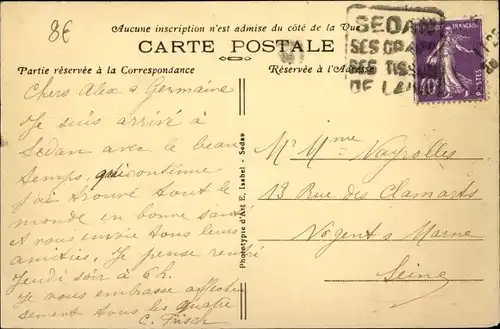 8€
Aucune inscription n'est admise du côté de la Vue
CARTE POSTALE
Partie réservée à la Correspondance
Réservée à l'Adresse
SEDAN
SES DRAPS
SES TISSUS
DE LAINE
POSTES
40
Chers Alex & Germaine
Je suis arrivé à
Sedan avec le beau
temps, qui continue
j'ai trouvé tout le
monde en bonne santé
et vous envoie tous leurs
amitiés. Je pense rentré
Jeudi soir à 6h.
Je vous embrasse affectueu
sement tous les quatre
C. Fisch
Phototypie d'Art E. Isabel - Sedan
Mr Mme Nayrolles
13 Rue des Clamarts
Nogent s Marne
Seine